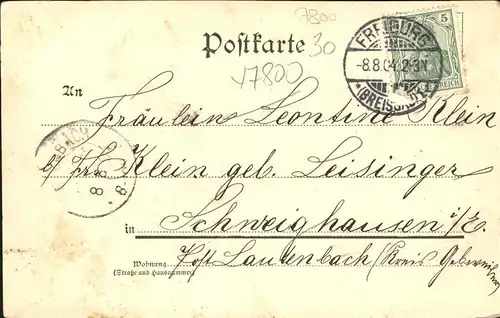 7800
Postkarte 30
17800
FREIBURG
5
-8.8.04.2-3N
REICH
(BREISGAU)
An Fräulein Leontine Klein
b/ Fr. Klein geb. Leisinger
8 8
in Schweighausen i/E.
Wohnung
(Straße und Hausnummer)
Post Lautenbach (Kreis Gebweiler)